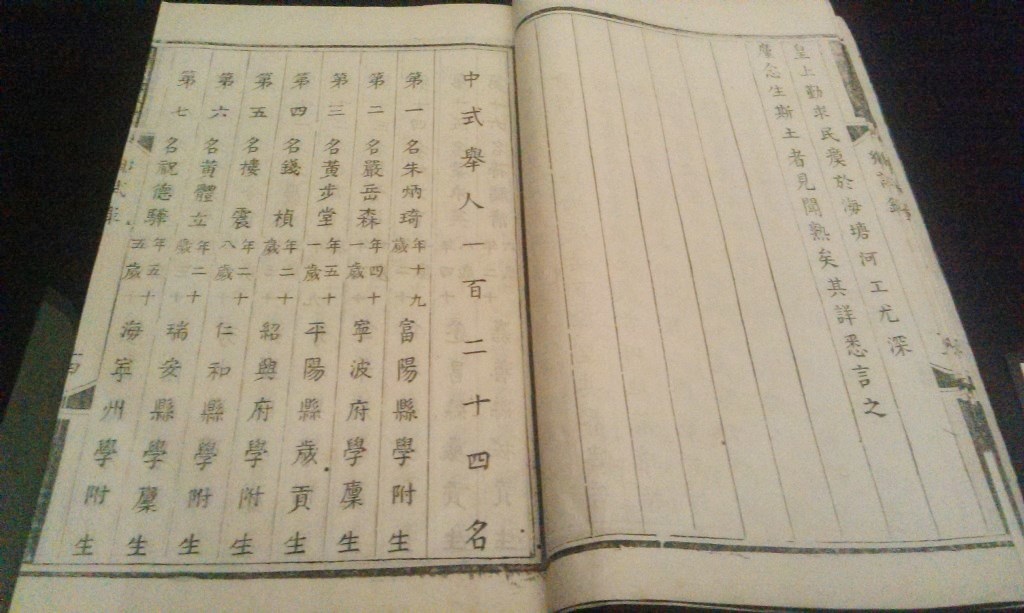 鄉試錄
皇上勤求民瘼於海塘河工尤深
廑念生斯土者見聞熟矣其詳悉言之
中式舉人一百二十四名
第一名朱炳琦年十九歲富陽縣學附生
第二名嚴岳森年四十一歲寧波府學廩生
第三名黃步堂年五十一歲平陽縣歲貢生
第四名錢楨年二十歲紹興府學附生
第五名樓雲年二十八歲仁和縣學附生
第六名黃體立年二十歲瑞安縣學廩生
第七名祝德驊年五十五歲海寧州學附生